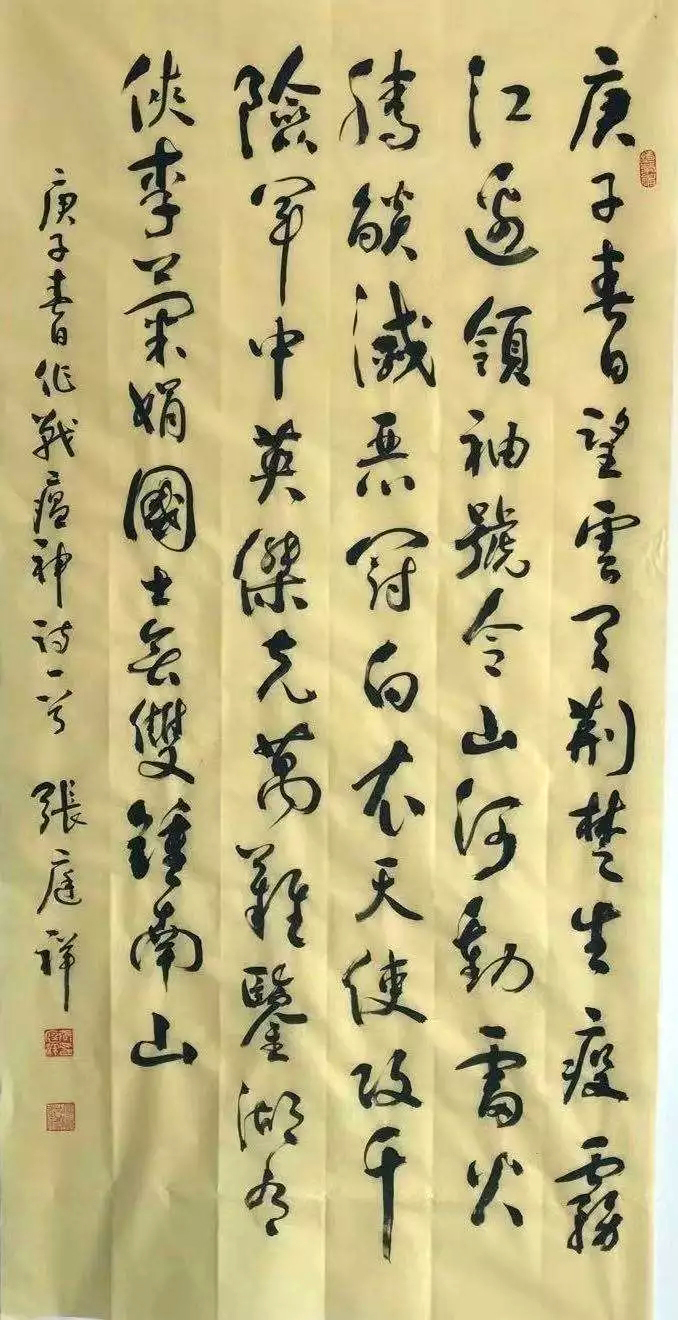 庚子春日望雲天荆楚生疫霧
江邊領袖號令山河動雷火
騰燄滅惡冠白衣天使攻千
險軍中英傑克萬難鑒湖有
俠李蘭娟國士無雙鍾南山
庚子春日作戰瘟神詩一首 張庭祥